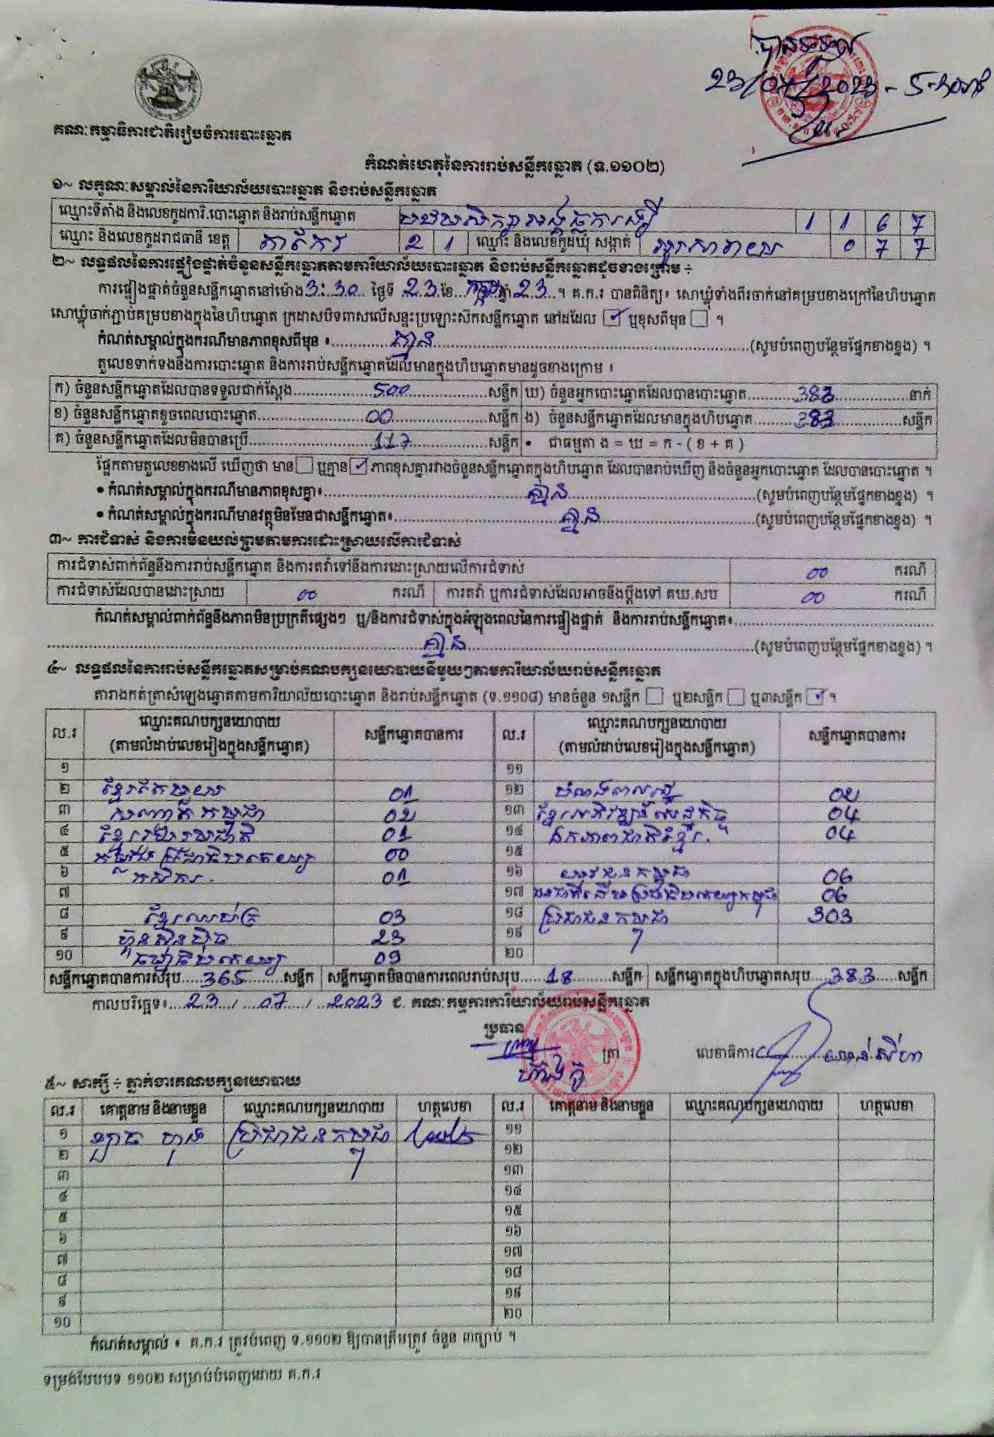 បានទទួល
23/07/2023 - 5:30នាទី
គណៈកម្មាធិការជាតិរៀបចំការបោះឆ្នោត
កំណត់ហេតុនៃការរាប់សន្លឹកឆ្នោត (ទ.១១០២)
១~ លក្ខណៈសម្គាល់នៃការិយាល័យបោះឆ្នោត និងរាប់សន្លឹកឆ្នោត
ឈ្មោះទីតាំង និងលេខកូដការិ.បោះឆ្នោត និងរាប់សន្លឹកឆ្នោត 1 1 6 7
ឈ្មោះ និងលេខកូដរាជធានី ខេត្ត តាកែវ 2 1 ឈ្មោះ និងលេខកូដឃុំ សង្កាត់ 0 7 7
២~ លទ្ធផលនៃការផ្ទៀងផ្ទាត់ចំនួនសន្លឹកឆ្នោតតាមការិយាល័យបោះឆ្នោត និងរាប់សន្លឹកឆ្នោតដូចខាងក្រោម ៖
ការផ្ទៀងផ្ទាត់ចំនួនសន្លឹកឆ្នោតនៅម៉ោង 3:30 ថ្ងៃទី 23 ខែ កក្កដា ឆ្នាំ 23 ។ គ.ក.រ បានពិនិត្យ៖ សោឃ្លុំទាំងពីរចាក់នៅគម្របខាងក្រៅនៃហិបឆ្នោត
សោឃ្លុំចាក់ភ្ជាប់គម្របខាងក្នុងនៃហិបឆ្នោត ក្រដាសបិទពាសលើសន្ទះប្រឡោះសឹកសន្លឹកឆ្នោត នៅដដែល ✓ ឬខុសពីមុន ។
កំណត់សម្គាល់ក្នុងករណីមានភាពខុសពីមុន ៖ គ្មាន (សូមបំពេញបន្ថែមផ្នែកខាងខ្នង) ។
តួលេខទាក់ទងនឹងការបោះឆ្នោត និងការរាប់សន្លឹកឆ្នោតដែលមានក្នុងហិបឆ្នោតមានដូចខាងក្រោម ៖
ក) ចំនួនសន្លឹកឆ្នោតដែលបានទទួលជាក់ស្តែង 500 សន្លឹក ឃ) ចំនួនអ្នកបោះឆ្នោតដែលបានបោះឆ្នោត 383 នាក់
ខ) ចំនួនសន្លឹកឆ្នោតខូចពេលបោះឆ្នោត 00 សន្លឹក ង) ចំនួនសន្លឹកឆ្នោតដែលមានក្នុងហិបឆ្នោត 383 សន្លឹក
គ) ចំនួនសន្លឹកឆ្នោតដែលមិនបានប្រើ 117 សន្លឹក • ជាធម្មតា ង = ឃ = ក - ( ខ + គ )
ផ្អែកតាមតួលេខខាងលើ ឃើញថា មាន ឬគ្មាន ✓ ភាពខុសគ្នារវាងចំនួនសន្លឹកឆ្នោតក្នុងហិបឆ្នោត ដែលបានរាប់ឃើញ និងចំនួនអ្នកបោះឆ្នោត ដែលបានបោះឆ្នោត ។
• កំណត់សម្គាល់ក្នុងករណីមានភាពខុសគ្នា៖ គ្មាន (សូមបំពេញបន្ថែមផ្នែកខាងខ្នង) ។
• កំណត់សម្គាល់ក្នុងករណីមានវត្ថុមិនមែនជាសន្លឹកឆ្នោត៖ គ្មាន (សូមបំពេញបន្ថែមផ្នែកខាងខ្នង) ។
៣~ ការជំទាស់ និងការមិនយល់ព្រមតាមការដោះស្រាយលើការជំទាស់
ការជំទាស់ពាក់ព័ន្ធនឹងការរាប់សន្លឹកឆ្នោត និងការតវ៉ាទៅនឹងការដោះស្រាយលើការជំទាស់ 00 ករណី
ការជំទាស់ដែលបានដោះស្រាយ 00 ករណី ការតវ៉ា ឬការជំទាស់ដែលអាចនឹងប្តឹងទៅ គឃ.សប 00 ករណី
កំណត់សម្គាល់ពាក់ព័ន្ធនឹងភាពមិនប្រក្រតីផ្សេងៗ ឬ/និងការជំទាស់ក្នុងអំឡុងពេលនៃការផ្ទៀងផ្ទាត់ និងការរាប់សន្លឹកឆ្នោត៖
គ្មាន (សូមបំពេញបន្ថែមផ្នែកខាងខ្នង) ។
៤~ លទ្ធផលនៃការរាប់សន្លឹកឆ្នោតសម្រាប់គណបក្សនយោបាយនីមួយៗតាមការិយាល័យរាប់សន្លឹកឆ្នោត
តារាងកត់ត្រាសំឡេងឆ្នោតតាមការិយាល័យបោះឆ្នោត និងរាប់សន្លឹកឆ្នោត (ទ.១១០៨) មានចំនួន ១សន្លឹក ឬ២សន្លឹក ឬ៣សន្លឹក ✓ ។
ល.រ ឈ្មោះគណបក្សនយោបាយ (តាមលំដាប់លេខរៀងក្នុងសន្លឹកឆ្នោត) សន្លឹកឆ្នោតបានការ ល.រ ឈ្មោះគណបក្សនយោបាយ (តាមលំដាប់លេខរៀងក្នុងសន្លឹកឆ្នោត) សន្លឹកឆ្នោតបានការ
១ ១១
២ ខ្មែរតែមួយ 01 ១២ 02
៣ កម្ពុជា 02 ១៣ ខ្មែរអភិវឌ្ឍន៍សេដ្ឋកិច្ច 04
៤ ខ្មែររួបរួមជាតិ 01 ១៤ ឯកភាពជាតិខ្មែរ 04
៥ 00 ១៥
៦ កសិករ 01 ១៦ យុវជនកម្ពុជា 06
៧ ១៧ 06
៨ ខ្មែរឈប់ក្រ 03 ១៨ ប្រជាជនកម្ពុជា 303
៩ ហ៊្វុនស៊ិនប៉ិច 23 ១៩
១០ ធម្មាធិបតេយ្យ 09 ២០
សន្លឹកឆ្នោតបានការសរុប 365 សន្លឹក សន្លឹកឆ្នោតមិនបានការពេលរាប់សរុប 18 សន្លឹក សន្លឹកឆ្នោតក្នុងហិបឆ្នោតសរុប 383 សន្លឹក
កាលបរិច្ឆេទ៖ 23 / 07 / 2023 ជ. គណៈកម្មការការិយាល័យរាប់សន្លឹកឆ្នោត
ប្រធាន
ត្រា លេខាធិការ
៥~ សាក្សី ÷ ភ្នាក់ងារគណបក្សនយោបាយ
ល.រ គោត្តនាម និងនាមខ្លួន ឈ្មោះគណបក្សនយោបាយ ហត្ថលេខា ល.រ គោត្តនាម និងនាមខ្លួន ឈ្មោះគណបក្សនយោបាយ ហត្ថលេខា
១ ប្រជាជនកម្ពុជា ១១
២ ១២
៣ ១៣
៤ ១៤
៥ ១៥
៦ ១៦
៧ ១៧
៨ ១៨
៩ ១៩
១០ ២០
កំណត់សម្គាល់ ៖ គ.ក.រ ត្រូវបំពេញ ទ.១១០២ ឱ្យបានត្រឹមត្រូវ ចំនួន ៣ច្បាប់ ។
ទម្រង់បែបបទ ១១០២ សម្រាប់បំពេញដោយ គ.ក.រ